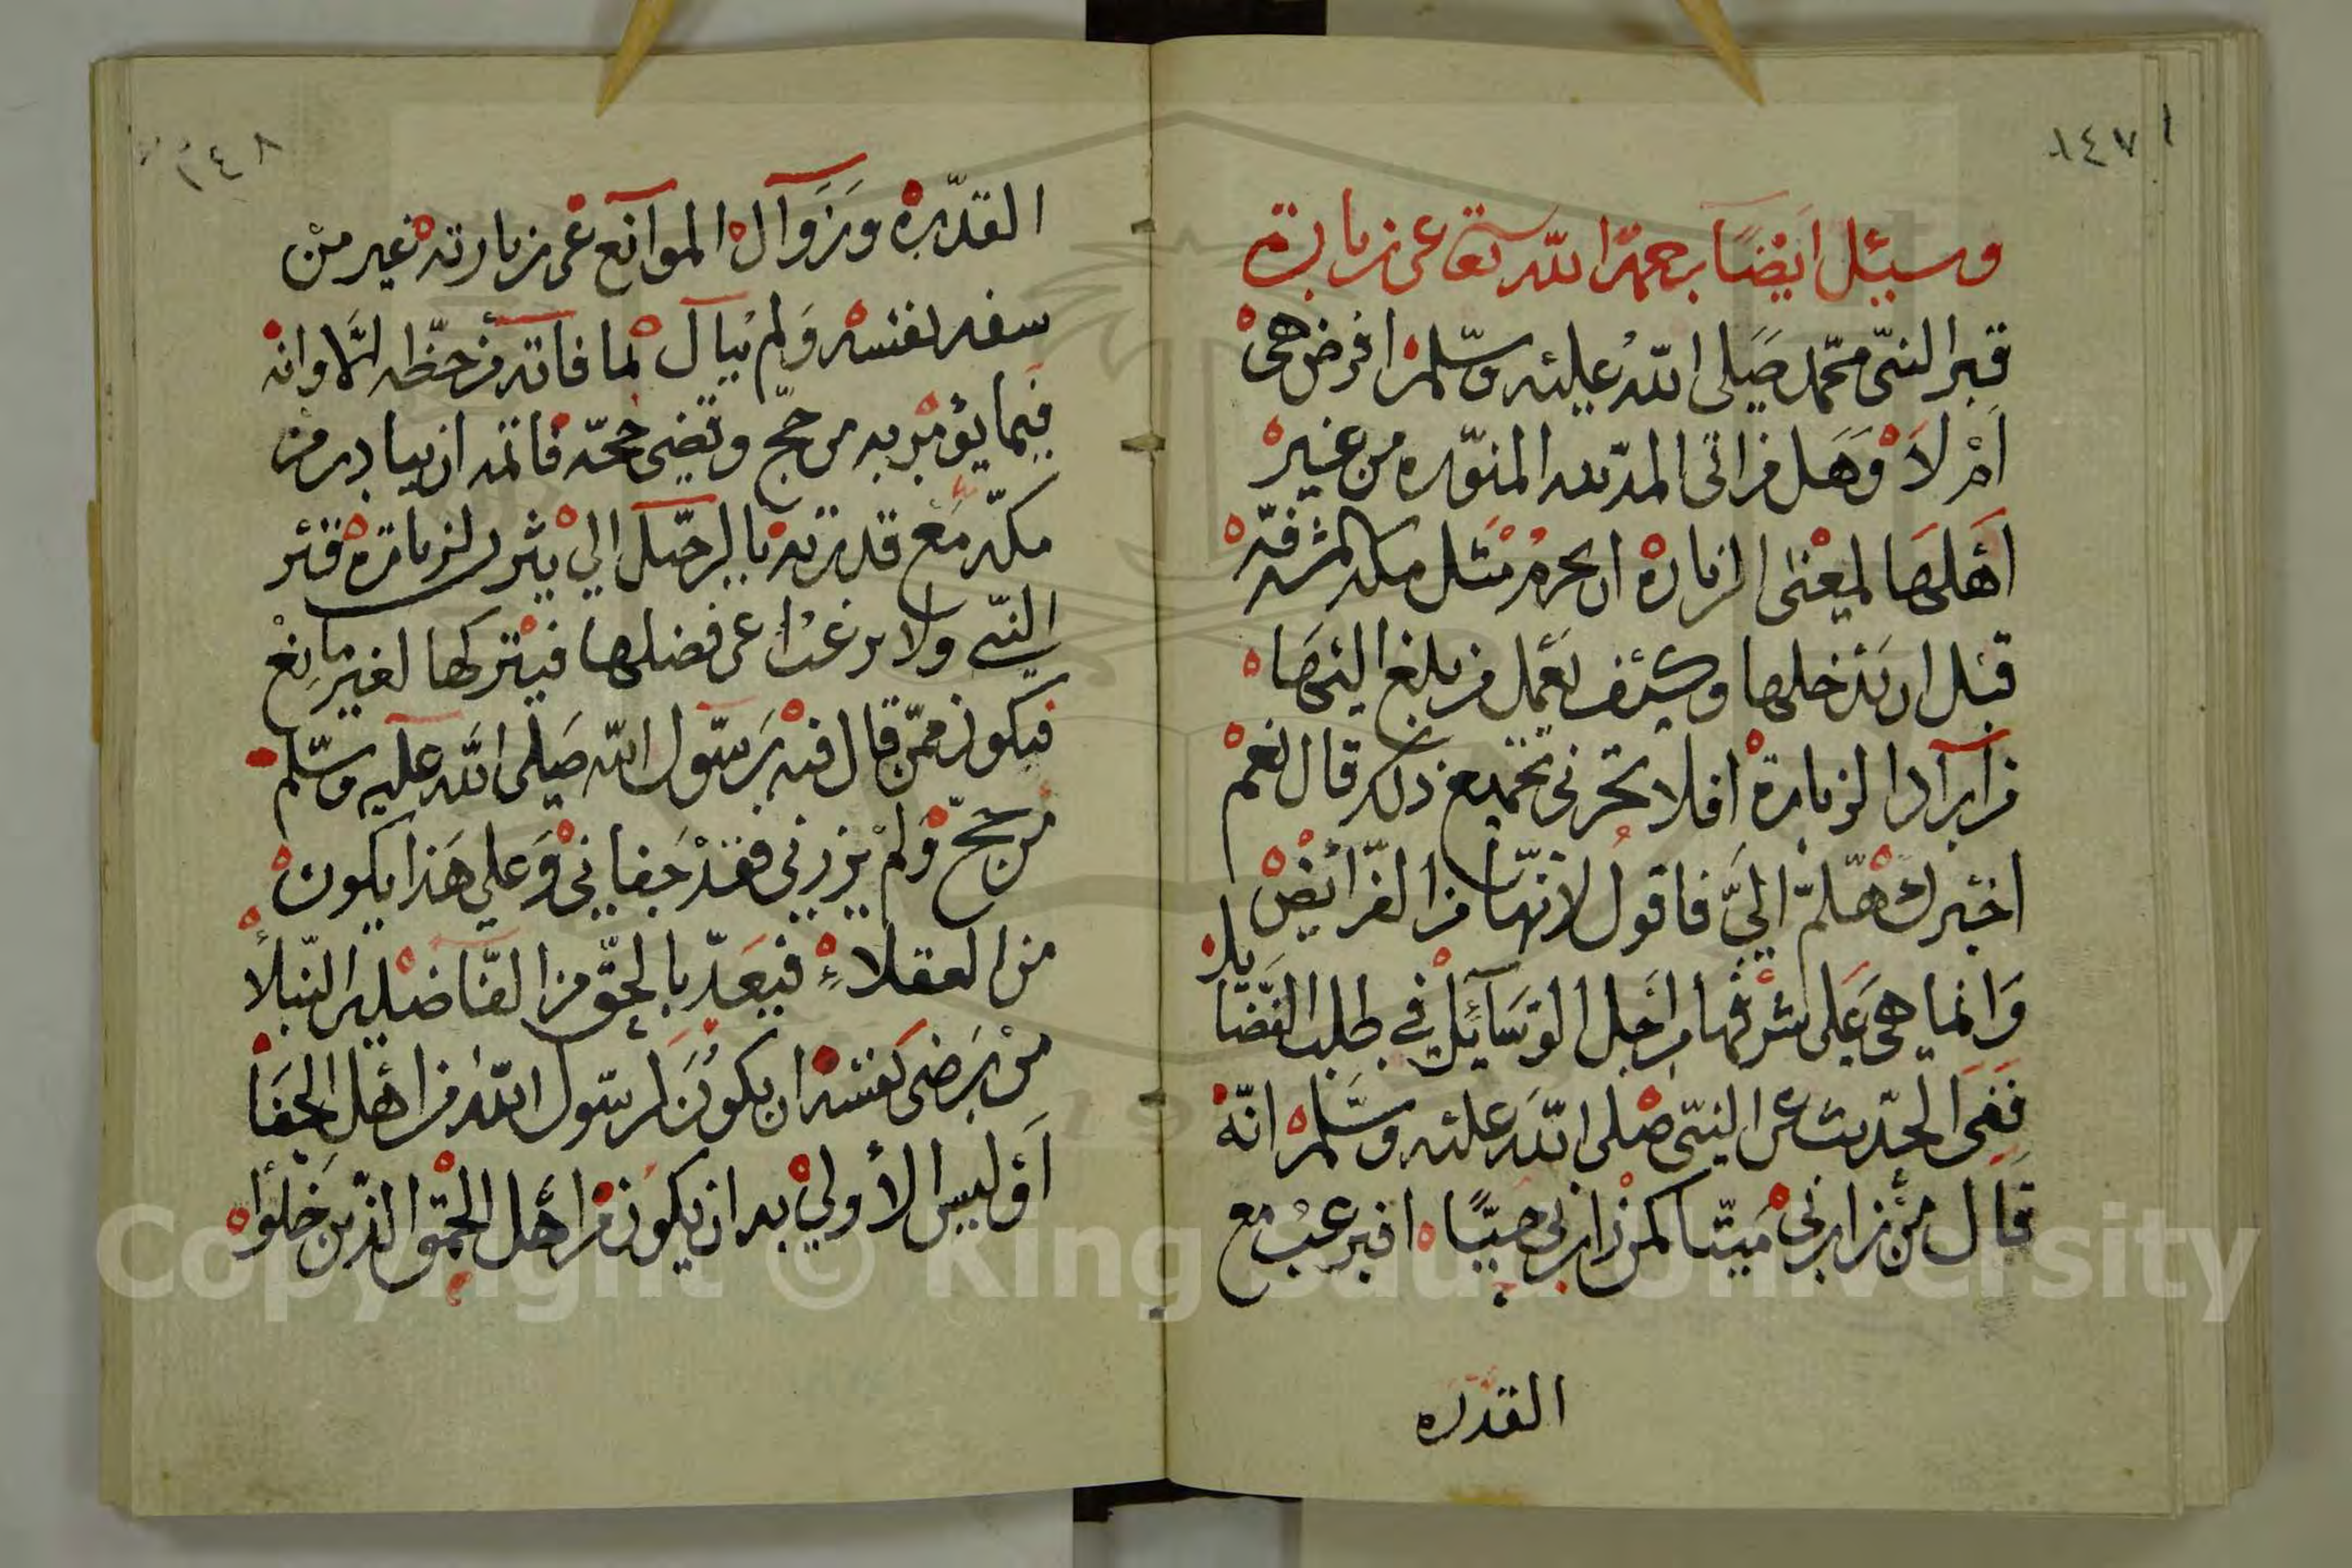 ١٤٧
وسيئل ايضًا رحمه الله تعا عن زيارة
قبر النبي محمد صَلى الله عليه وسّلم افرض هي
اَمْ لاَ وَهَل من اتى المدينه المنوّره من غير
اَهَلهَا لمعنى الزياره ان يحرم مثل مكه المشرفه
قبل ان يدخلها وكيف يعمل من بلغ اليهَا
من اراد الزيارة افلا تخبرني بجميع ذلك قال نعم
اخبرك هلمّ اليّ فاقول لا انها من الفرايض بل
وَانما هي عَلى شرفها من اجل الوسَائل في طلب الفضَا
ففي الحديث عن النبي صلى الله عليه وسّلم انّه
قَال من زارني مَيتّا كمن زارني حيّا افيرغب مع
القدره
١٤٨
القدّره وزَوَال الموانع عن زيارته غير من
سفه نفسه وَلم يبال لما فاته من حظه الّا وانه
فيما يؤمر به من حجّ وقضى حجّه فانه ان يبادر من
مكّه مَع قدرته بالرحّل الي يثرب لزيارة قبر
النبي ولا يرغب عن فضلها فيتركها لغير مانِع
فيكون ممّن قال فيه رَسّول الله صَلى الله عليه وسّلم
من حجّ وَلم يزرني فقدْ جَفاني وَعلي هَذا يكون
من العقلاءِ فيعَدّ بالحقّ من الفاضلين النّبلاُ
من يَرضى لنفسه ان يكوُن لرسّول الله من اهل الجفَا
اَوَ ليس الأولي به ان يكوُن من اهل الحمق الذين خلوا
Copyright © King Saud University